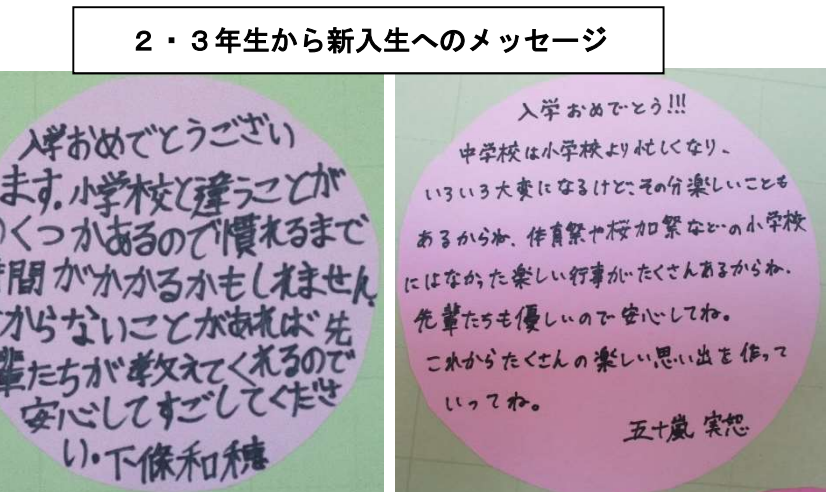 ２・３年生から新入生へのメッセージ
入学おめでとうござい
ます。小学校と違うことが
くつかあるので慣れるまで
時間がかかるかもしれません
からないことがあれば先
輩たちが教えてくれるので
安心してすごしてくださ
い。下條和穂
入学おめでとう!!!
中学校は小学校より忙しくなり、
いろいろ大変になるけど、その分楽しいことも
あるからね、体育祭や桜加祭などの小学校
にはなかった楽しい行事がたくさんあるからね、
先輩たちも優しいので安心してね。
これからたくさんの楽しい思い出を作って
いってね。
五十嵐 実恕